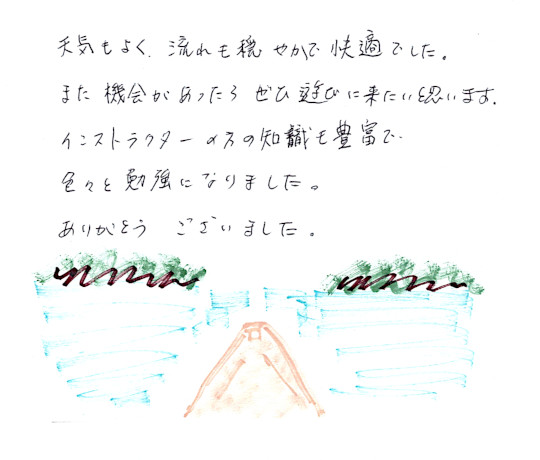 天気もよく、流れも穏やかで快適でした。
また機会があったらぜひ遊びに来たいと思います。
インストラクターの方の知識も豊富で
色々と勉強になりました。
ありがとうございました。